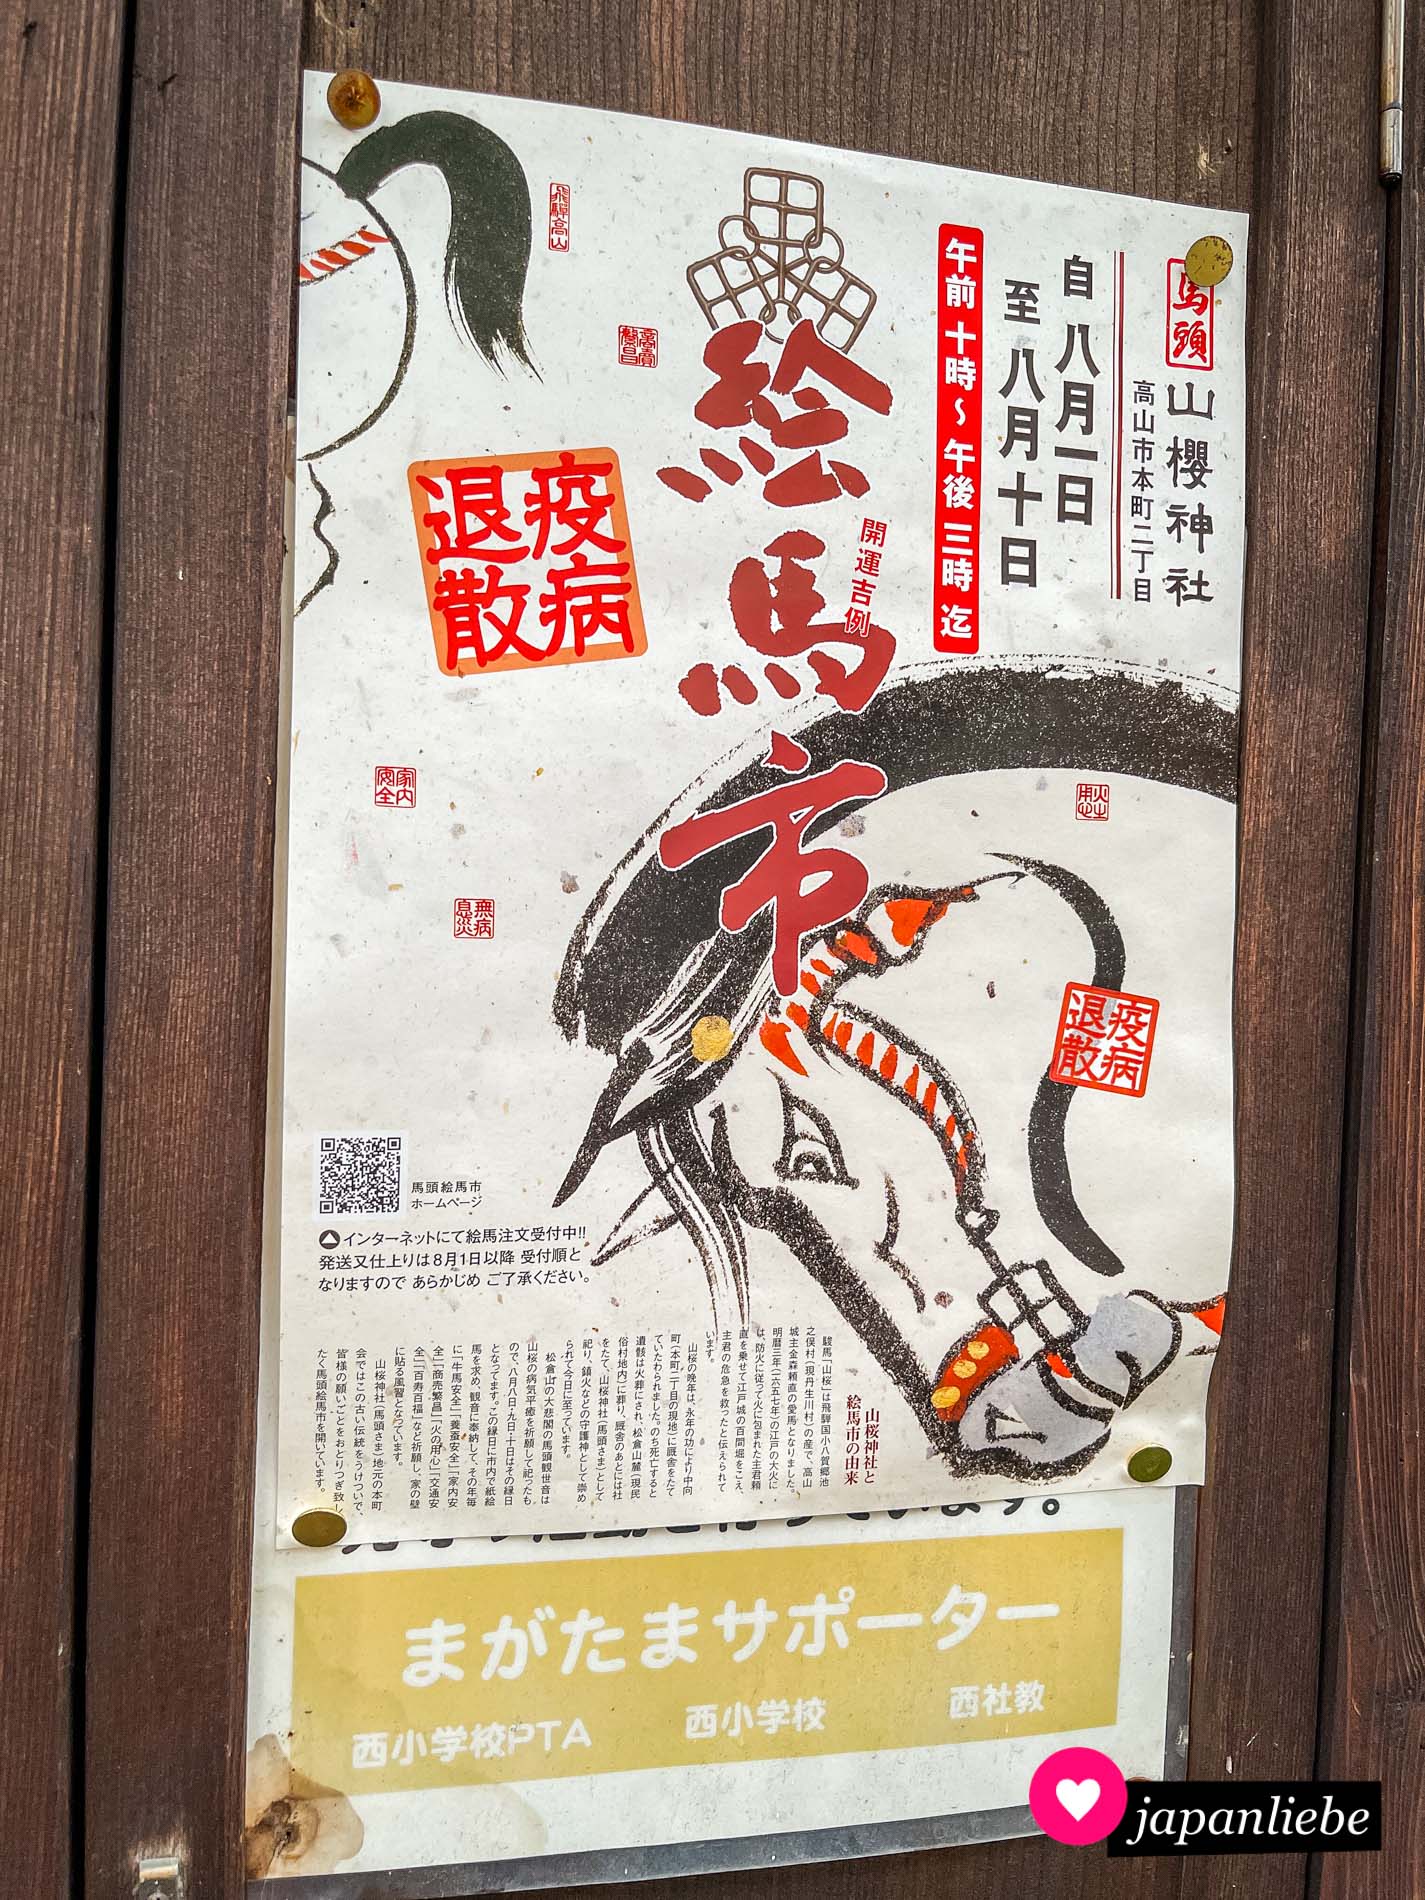 馬頭
山櫻神社
高山市本町二丁目
自 八月一日
至 八月十日
午前十時～午後三時迄
絵馬市
開運吉例
飛騨高山
疫病
退散
家内
安全
無病
息災
火の
用心
疫病
退散
馬頭絵馬市
ホームページ
インターネットにて絵馬注文受付中!!
発送又仕上りは8月1日以降 受付順と
なりますので あらかじめ ご了承ください。
山桜神社と
絵馬市の由来
駿馬「山桜」は飛騨国小八賀郷池
之俣村(現丹生川村)の産で、高山
城主金森頼直の愛馬となりました。
明暦三年(一六五七年)の江戸の大火に
は、防火に従って火に包まれた主君頼
直を乗せて江戸城の百間堀をこえ、
主君の危急を救ったと伝えられて
います。
山桜の晩年は、永年の功により中向
町(本町二丁目の現地)に厩舎をたて
ていたわられました。のち死亡すると
遺骸は火葬にされ、松倉山麓(現民
俗村地内)に葬り、厩舎のあとには社
をたて、山桜神社(馬頭さま)として
祀り、鎮火などの守護神として崇め
られて今日に至っています。
松倉山の大悲閣の馬頭観世音は
山桜の病気平癒を祈願して祀ったも
ので、八月八日・九日・十日はその縁日
となってます。この縁日に市内で紙絵
馬を求め、観音に奉納して、その年毎
に「牛馬安全」「養蚕安全」「家内安
全」「商売繁昌」「火の用心」「交通安
全」「百寿百福」など祈願し、家の壁
に貼る風習となっています。
山桜神社(馬頭さま)地元の本町
会ではこの古い伝統をうけついで、
皆様の願いごとをおとりつぎ致し
たく馬頭絵馬市を開いています。
まがたまサポーター
西小学校PTA
西小学校
西社教
japanliebe